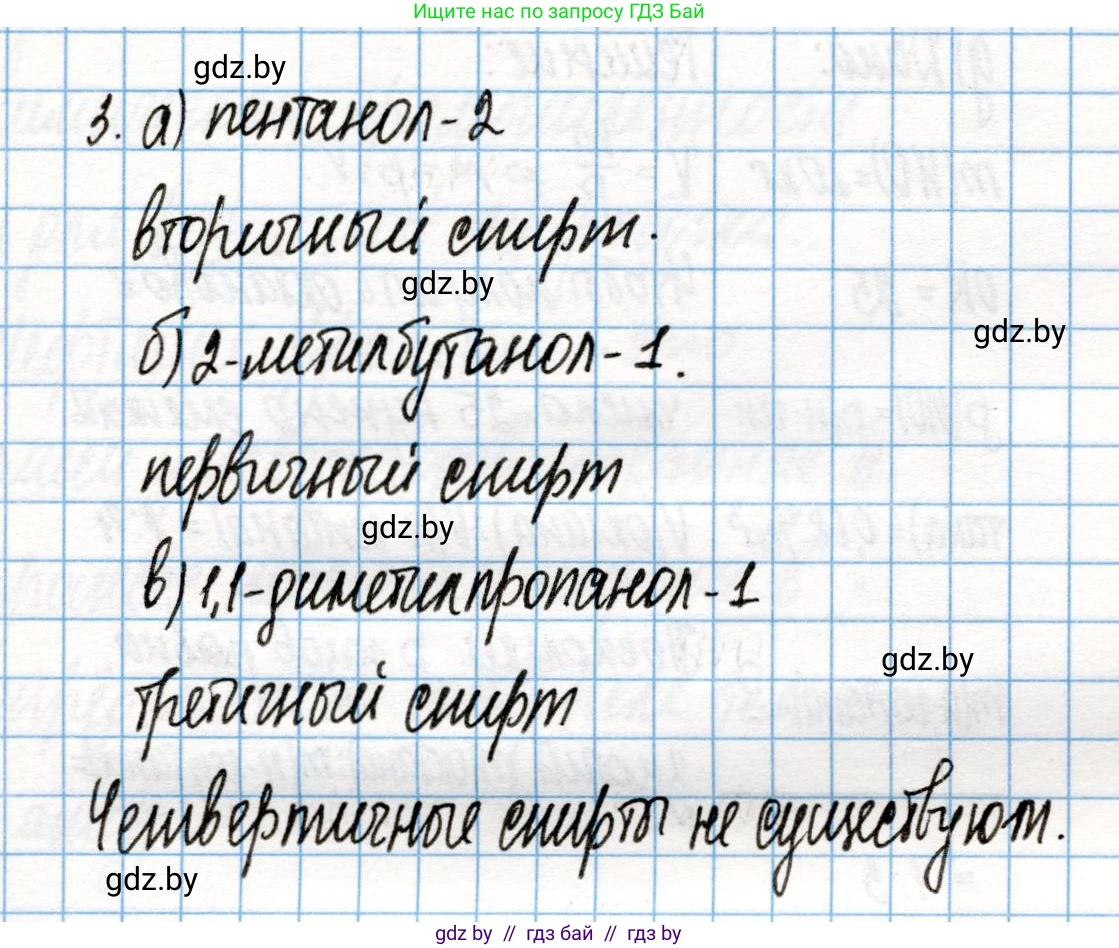 Ищите нас по запросу ГДЗ Бай
gdz.by
3. а) пентанол-2
вторичный спирт.
gdz.by
б) 2-метилбутанол-1.
gdz.by
первичный спирт
gdz.by
в) 1,1-диметилпропанол-1
gdz.by
третичный спирт
Четвертичные спирты не существуют.
gdz.by
gdz by // гдз бай // гдз by